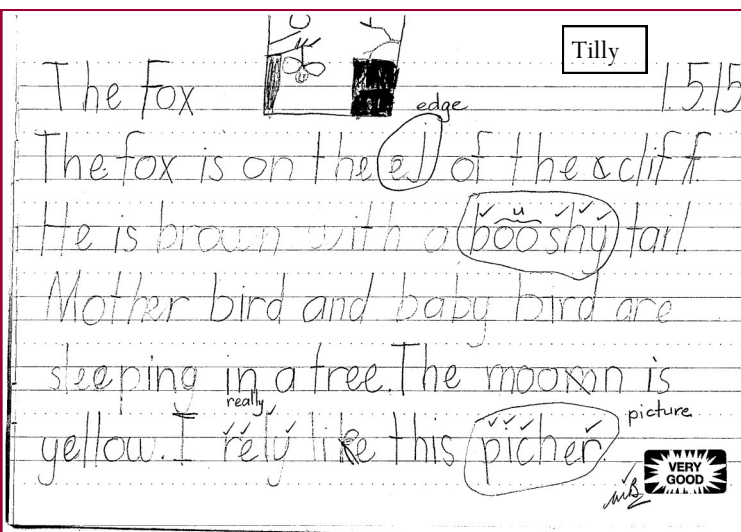 Tilly
The Fox 1.5.15
edge
The fox is on the ej of the cliff.
u
He is brown with a booshy tail.
Mother bird and baby bird are
sleeping in a tree. The moon is
really picture
yellow. I rely like this picher.
VERY
GOOD